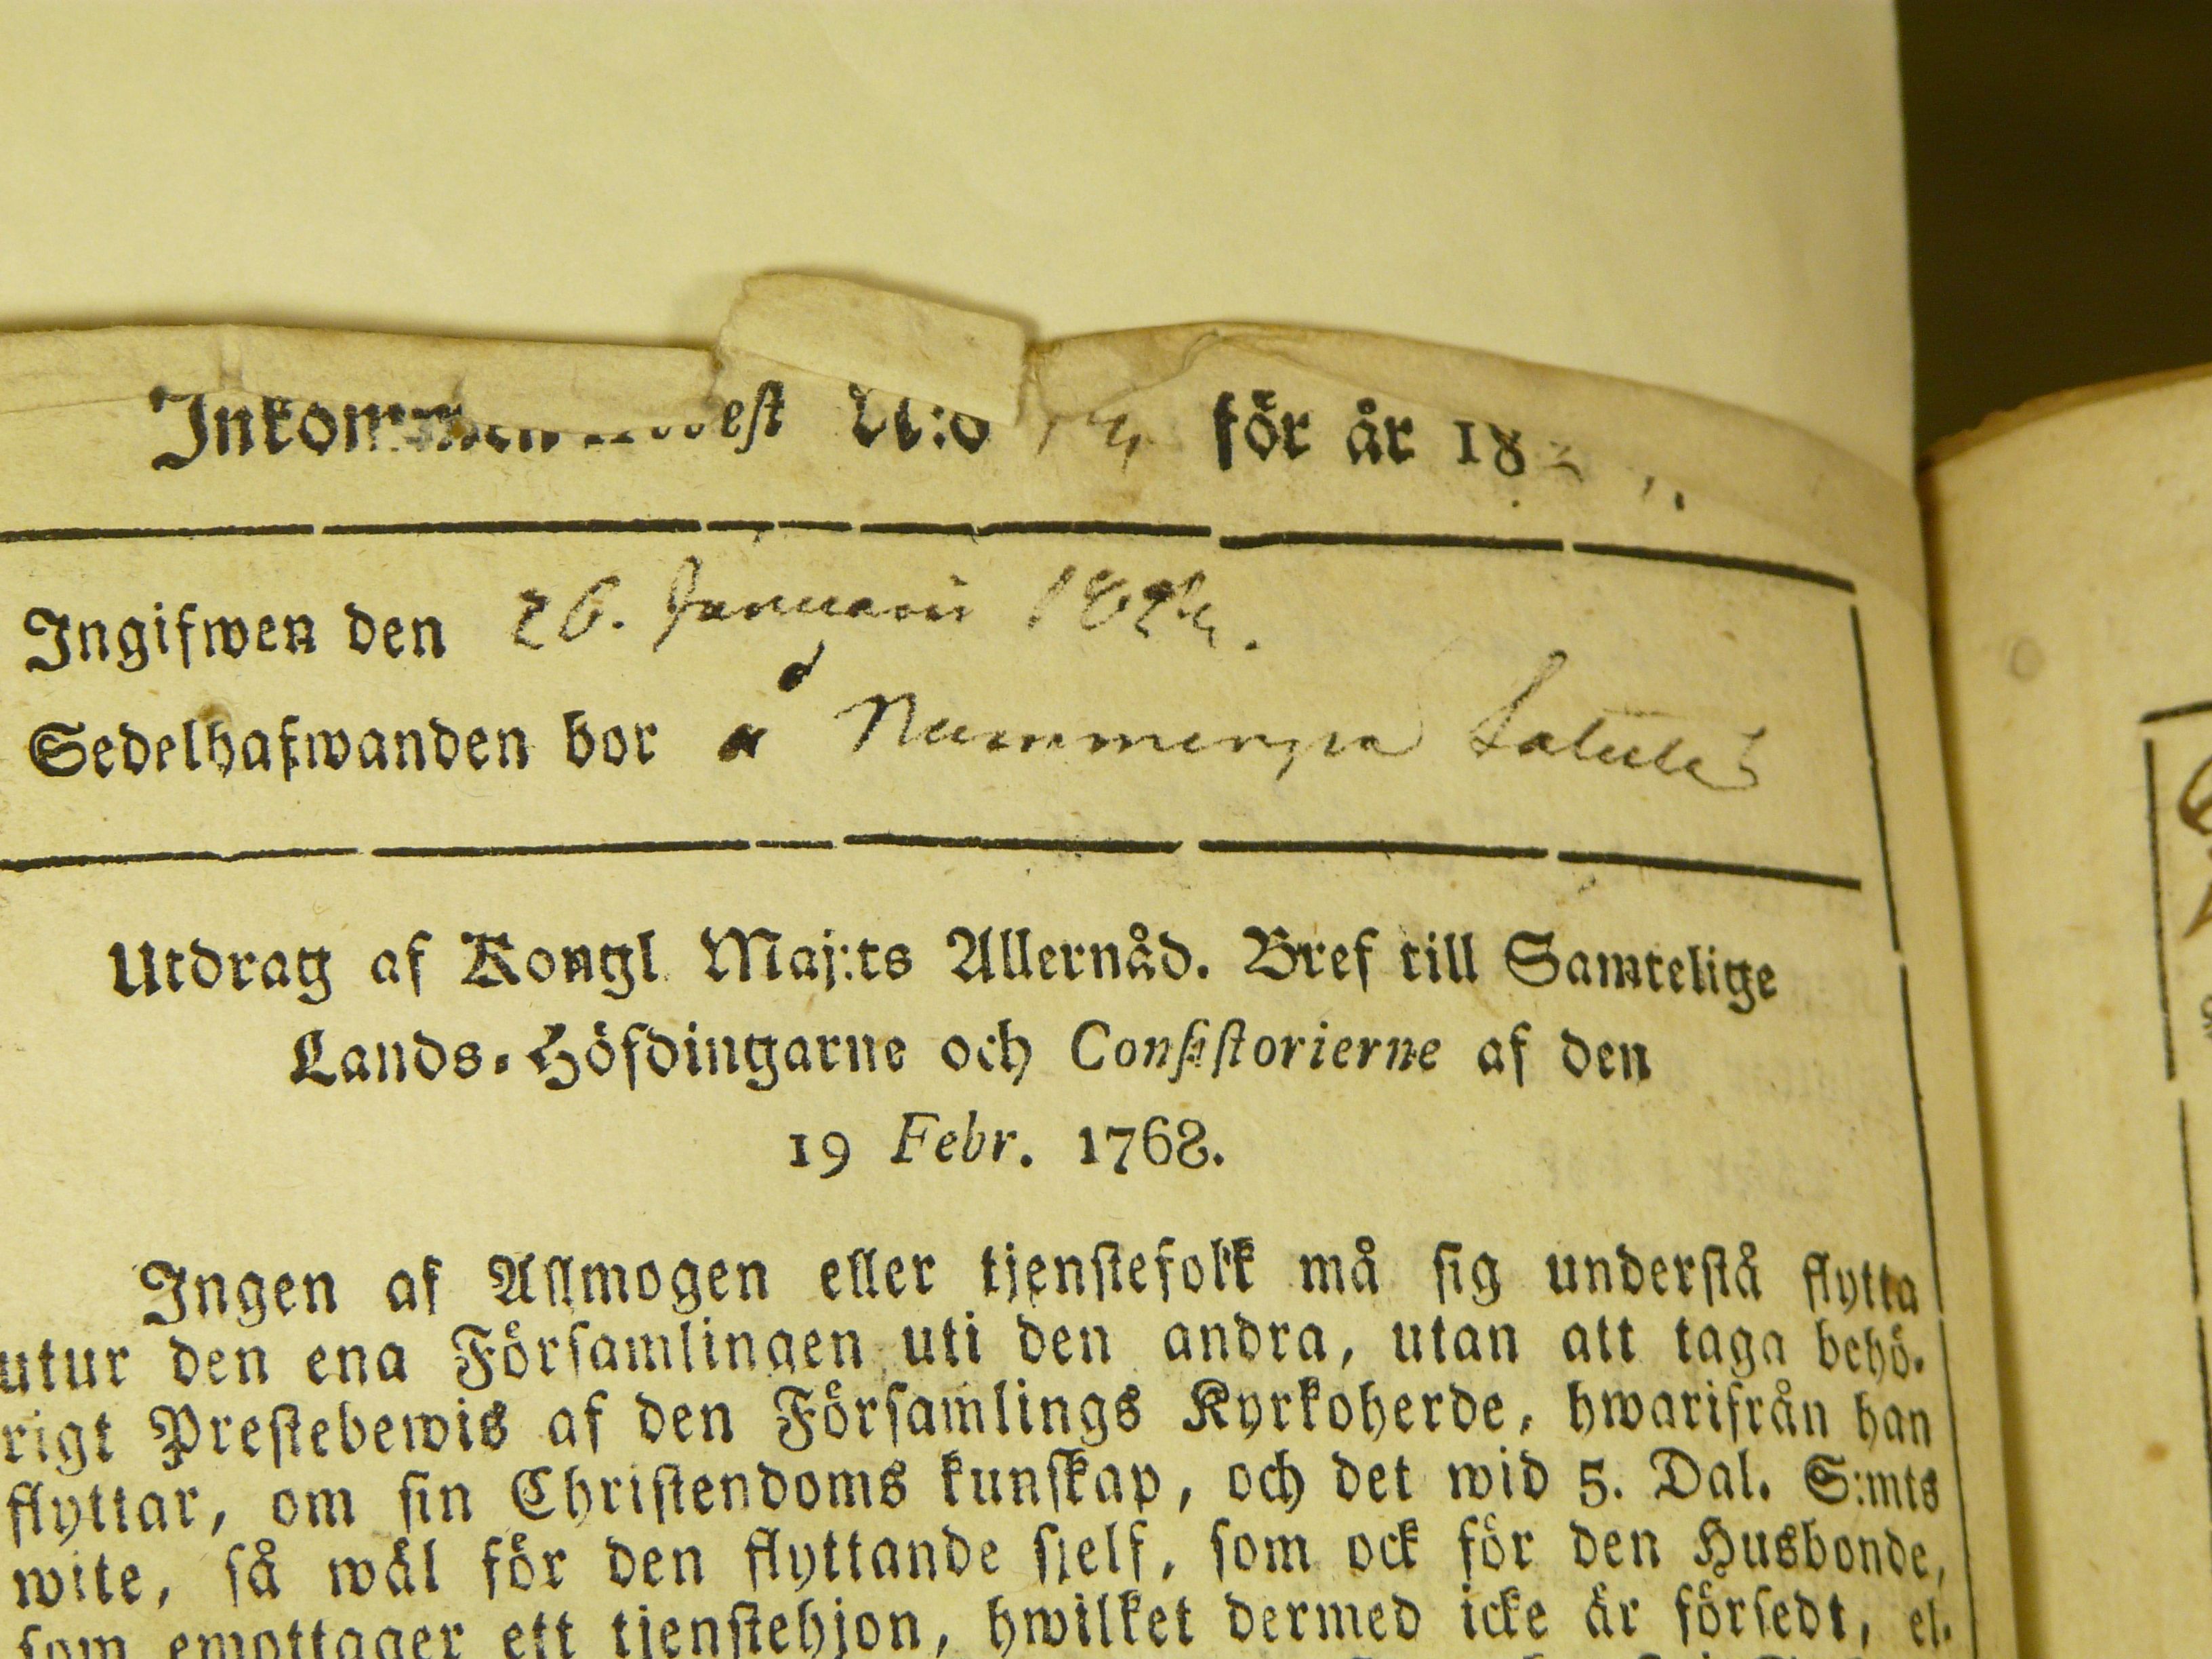 Inkommen est N:o för år 18
Ingifwen den 26. Januarii 1824.
Sedelhafwanden bor å Nummenpää
Utdrag af Kongl. Maj:ts Allernåd. Bref till Samtelige
Lands-Höfdingarne och Consistorierne af den
19 Febr. 1768.
Ingen af Allmogen eller tjenstefolk må sig understå flytta
utur den ena Församlingen uti den andra, utan att taga behö-
rigt Prestebewis af den Församlings Kyrkoherde, hwarifrån han
flyttar, om sin Christendoms kunskap, och det wid 5. Dal. S:mts
wite, så wäl för den flyttande sjelf, som ock för den Husbonde,
som emottager ett tjenstehjon, hwilket dermed icke är försedt, el-